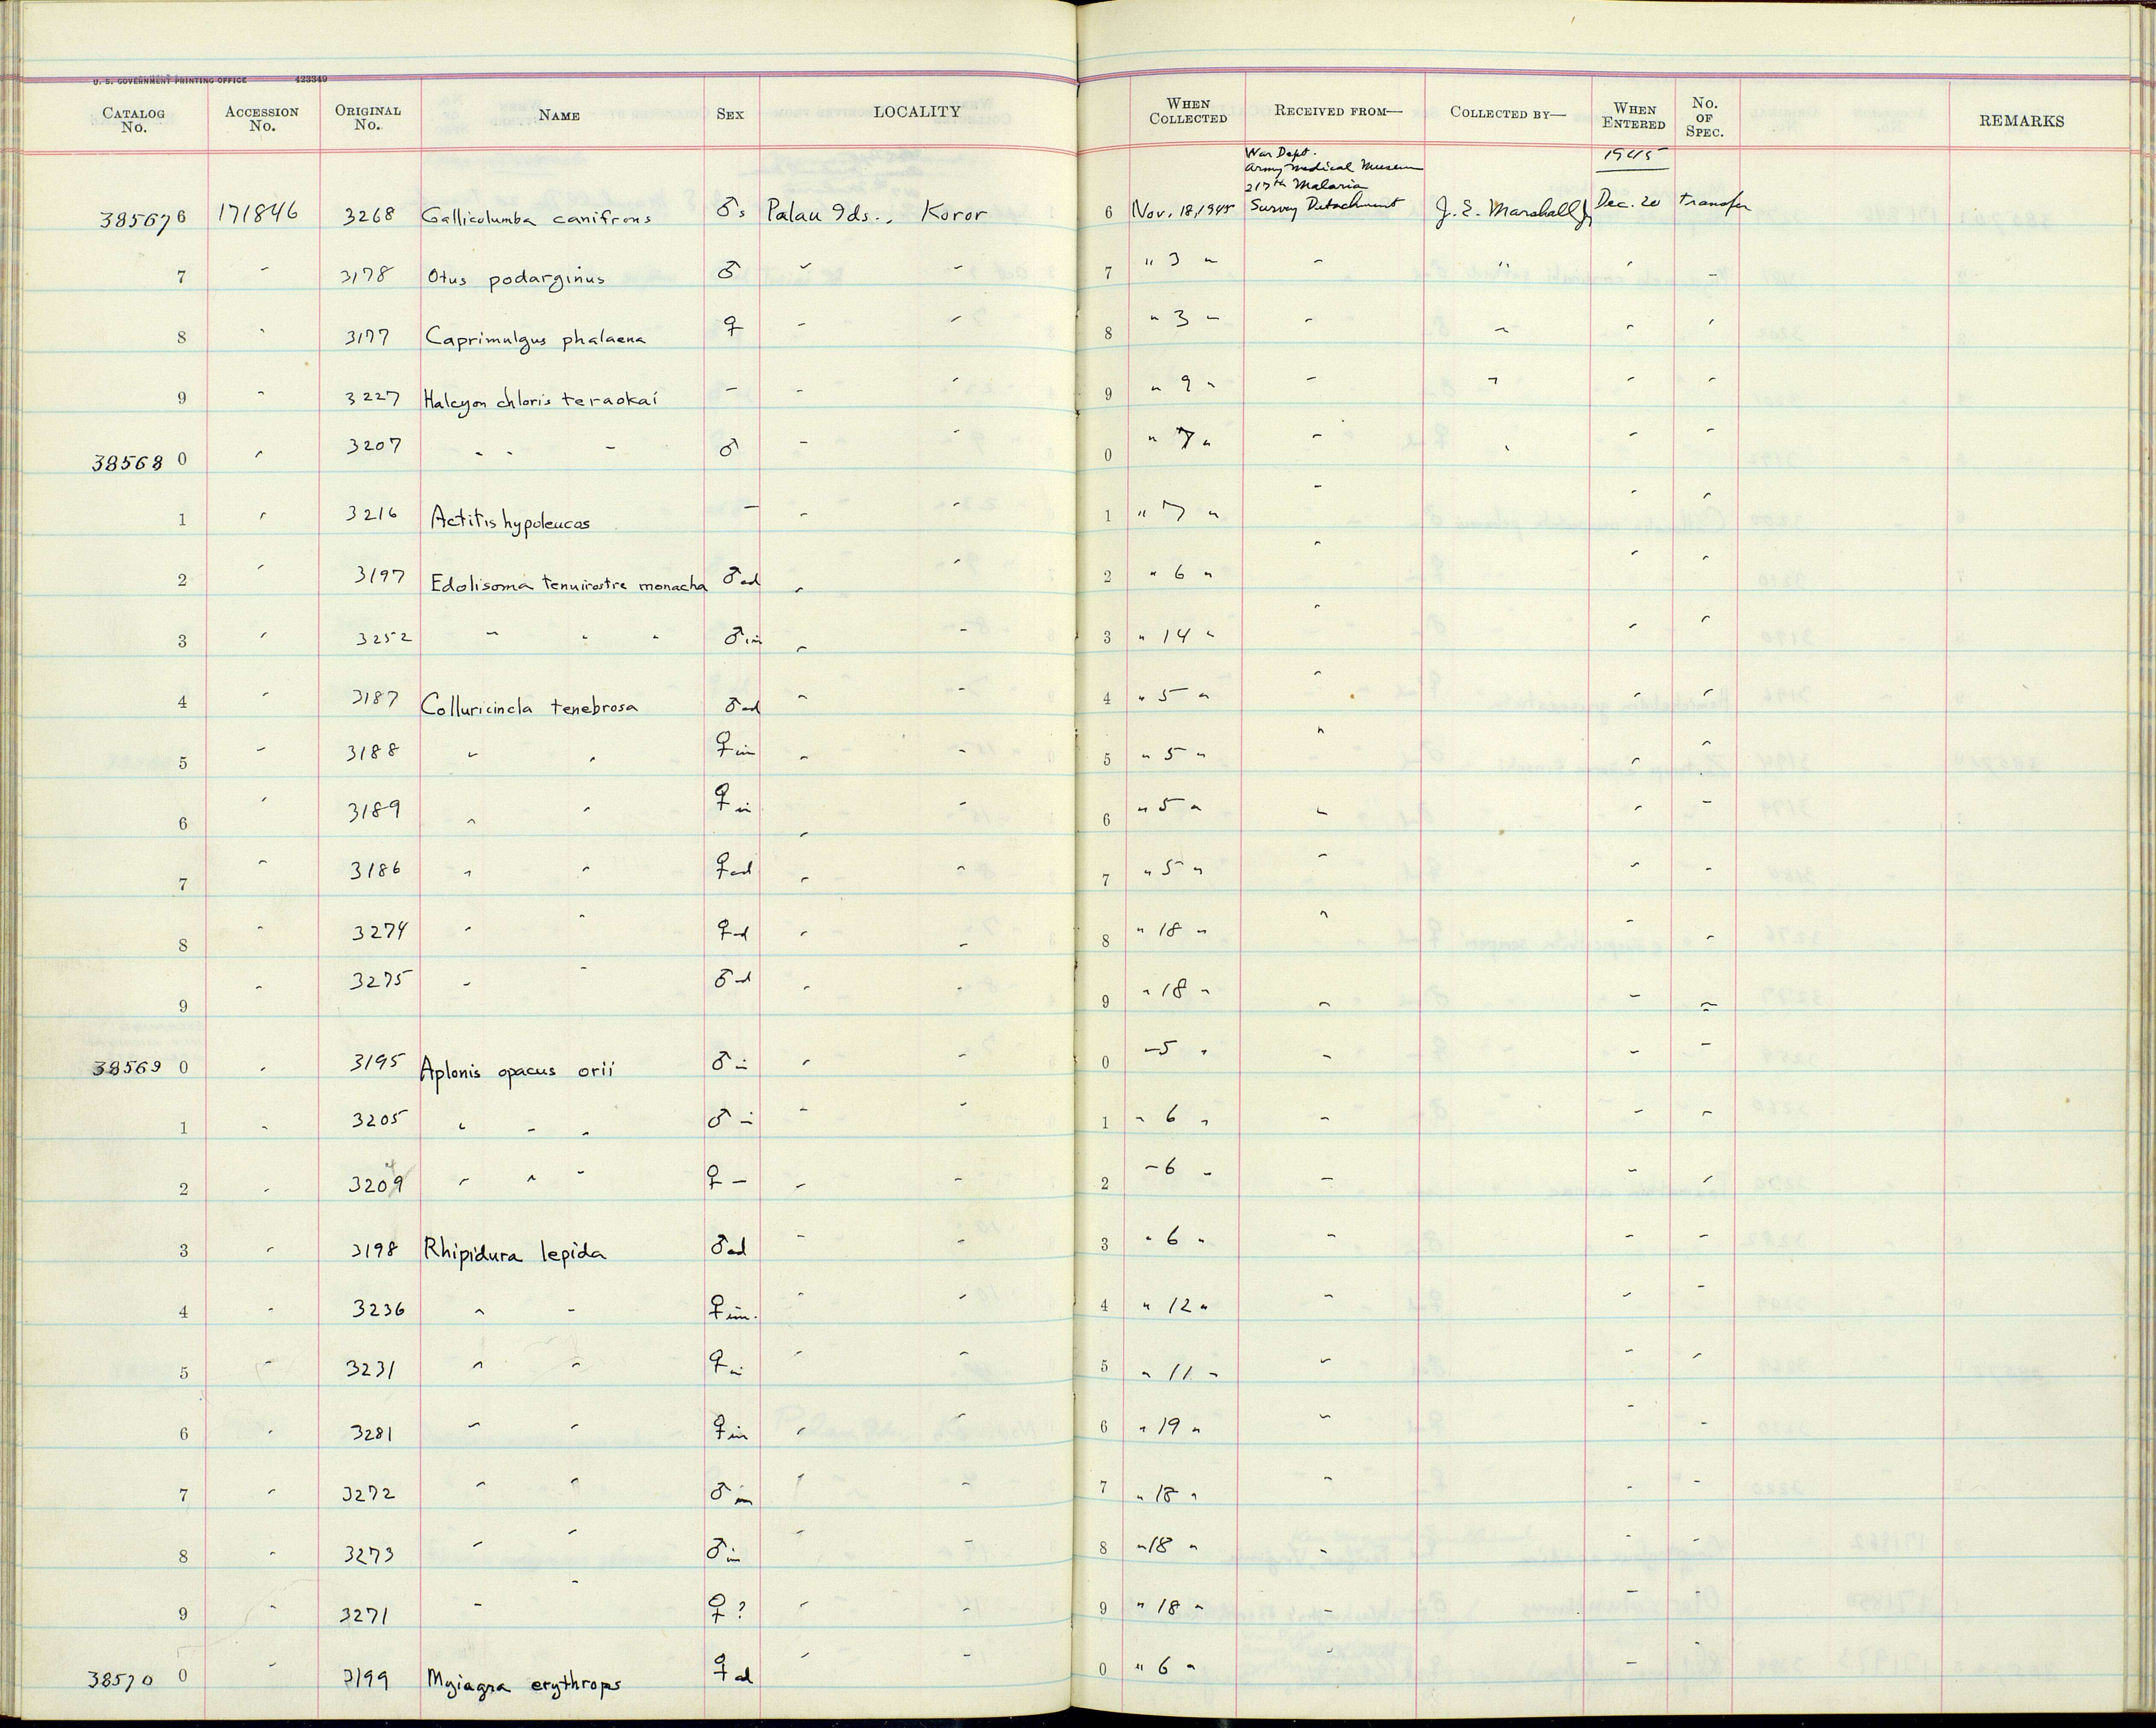 U. S. GOVERNMENT PRINTING OFFICE 423349
CATALOG No. ACCESSION No. ORIGINAL No. NAME SEX LOCALITY WHEN COLLECTED RECEIVED FROM— COLLECTED BY— WHEN ENTERED No. OF SPEC. REMARKS
War Dept. 1945
Army Medical Museum
217th Malaria
385676 171846 3268 Gallicolumba canifrons ♂s Palau Ids., Koror 6 Nov. 18, 1945 Survey Detachment J. E. Marshall Jr Dec. 20 transfer
7 " 3178 Otus podarginus ♂ " " 7 " 3 " " " " "
8 " 3177 Caprimulgus phalaena ♀ " " 8 " 3 " " " " "
9 " 3227 Halcyon chloris teraokai – " " 9 " 9 " " " " "
385680 " 3207 " " " ♂ " " 0 " 7 " " " " "
1 " 3216 Actitis hypoleucos – " " 1 " 7 " " " "
2 " 3197 Edolisoma tenuirostre monacha ♂ad " " 2 " 6 " " " "
3 " 3252 " " " ♂im " " 3 " 14 " " " "
4 " 3187 Colluricincla tenebrosa ♂ad " " 4 " 5 " " " "
5 " 3188 " " ♀im " " 5 " 5 " " " "
6 " 3189 " " ♀im " " 6 " 5 " " " "
7 " 3186 " " ♀ad " " 7 " 5 " " " "
8 " 3274 " " ♀ad " " 8 " 18 " " " "
9 " 3275 " " ♂ad " " 9 " 18 " " " "
385690 " 3195 Aplonis opacus orii ♂im " " 0 " 5 " " " "
1 " 3205 " " " ♂im " " 1 " 6 " " " "
2 " 3209 4 " " " ♀ – " " 2 " 6 " " " "
3 " 3198 Rhipidura lepida ♂ad " " 3 " 6 " " " "
4 " 3236 " " ♀im. " " 4 " 12 " " " "
5 " 3231 " " ♀im " " 5 " 11 " " " "
6 " 3281 " " ♀im " " 6 " 19 " " " "
7 " 3272 " " ♂im " " 7 " 18 " " " "
8 " 3273 " " ♂im " " 8 " 18 " " " "
9 " 3271 " " ♀? " " 9 " 18 " " " "
385700 " 3199 Myiagra erythrops ♀ad " " 0 " 6 " " " "